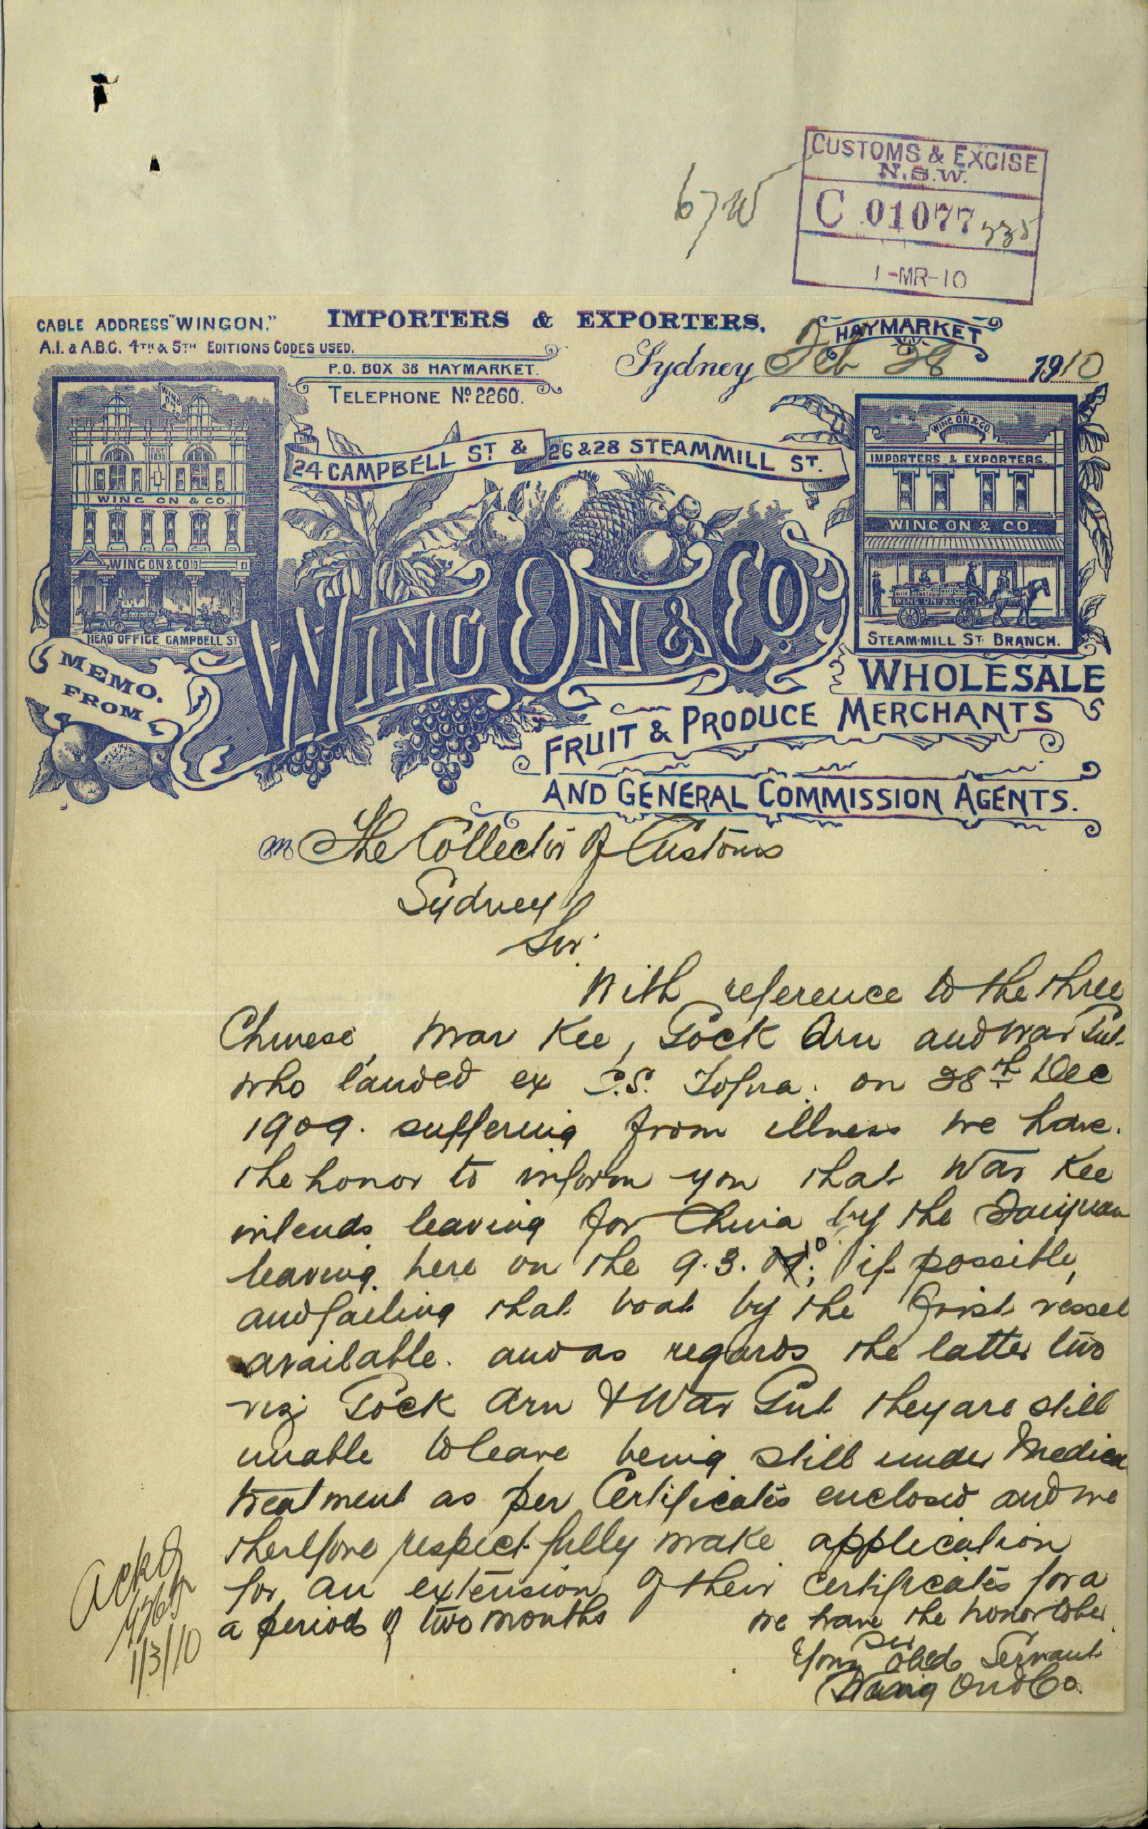 CUSTOMS & EXCISE
N.S.W.
C 01077
1-MR-10
CABLE ADDRESS "WINGON."
A.I. & A.B.C. 4TH & 5TH EDITIONS CODES USED.
IMPORTERS & EXPORTERS.
P.O. BOX 38 HAYMARKET.
TELEPHONE No 2260.
HAYMARKET
Sydney Feb 28 1910
24 CAMPBELL ST & 26 & 28 STEAMMILL ST.
WING ON & CO
WING ON & CO
HEAD OFFICE CAMPBELL ST
WING ON & CO
IMPORTERS & EXPORTERS.
WING ON & CO.
STEAM-MILL ST. BRANCH.
MEMO. FROM
WING ON & CO.
WHOLESALE
FRUIT & PRODUCE MERCHANTS
AND GENERAL COMMISSION AGENTS.
M The Collector of Customs
Sydney
Sir.
With reference to the three
Chinese, War Kee, Gock Arn and War Gut
who landed ex S.S. Tofua. on 28th Dec
1909. suffering from illness we have.
the honor to inform you that War Kee
intends leaving for China by the Taiyuan
leaving here on the 9.3.10; if possible,
and failing that boat by the first vessel
available. and as regards the latter two
viz Gock Arn & War Gut they are still
unable to leave being still under Medical
treatment as per Certificates enclosed and we
therefore respectfully make application
for an extension of their certificates for a
a period of two months we have the honor to be
Your Obed Servant
per
Wing On & Co.
Ackd
1/3/10